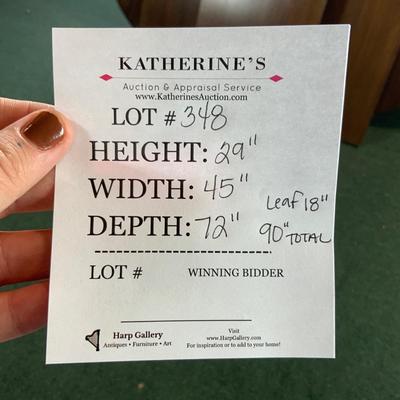 KATHERINE'S
Auction & Appraisal Service
www.KatherinesAuction.com
LOT # 348
HEIGHT: 29"
WIDTH: 45"
Leaf 18"
DEPTH: 72"
90" TOTAL
LOT #
WINNING BIDDER
Harp Gallery
Antiques • Furniture • Art
Visit
www.HarpGallery.com
For inspiration or to add to your home!